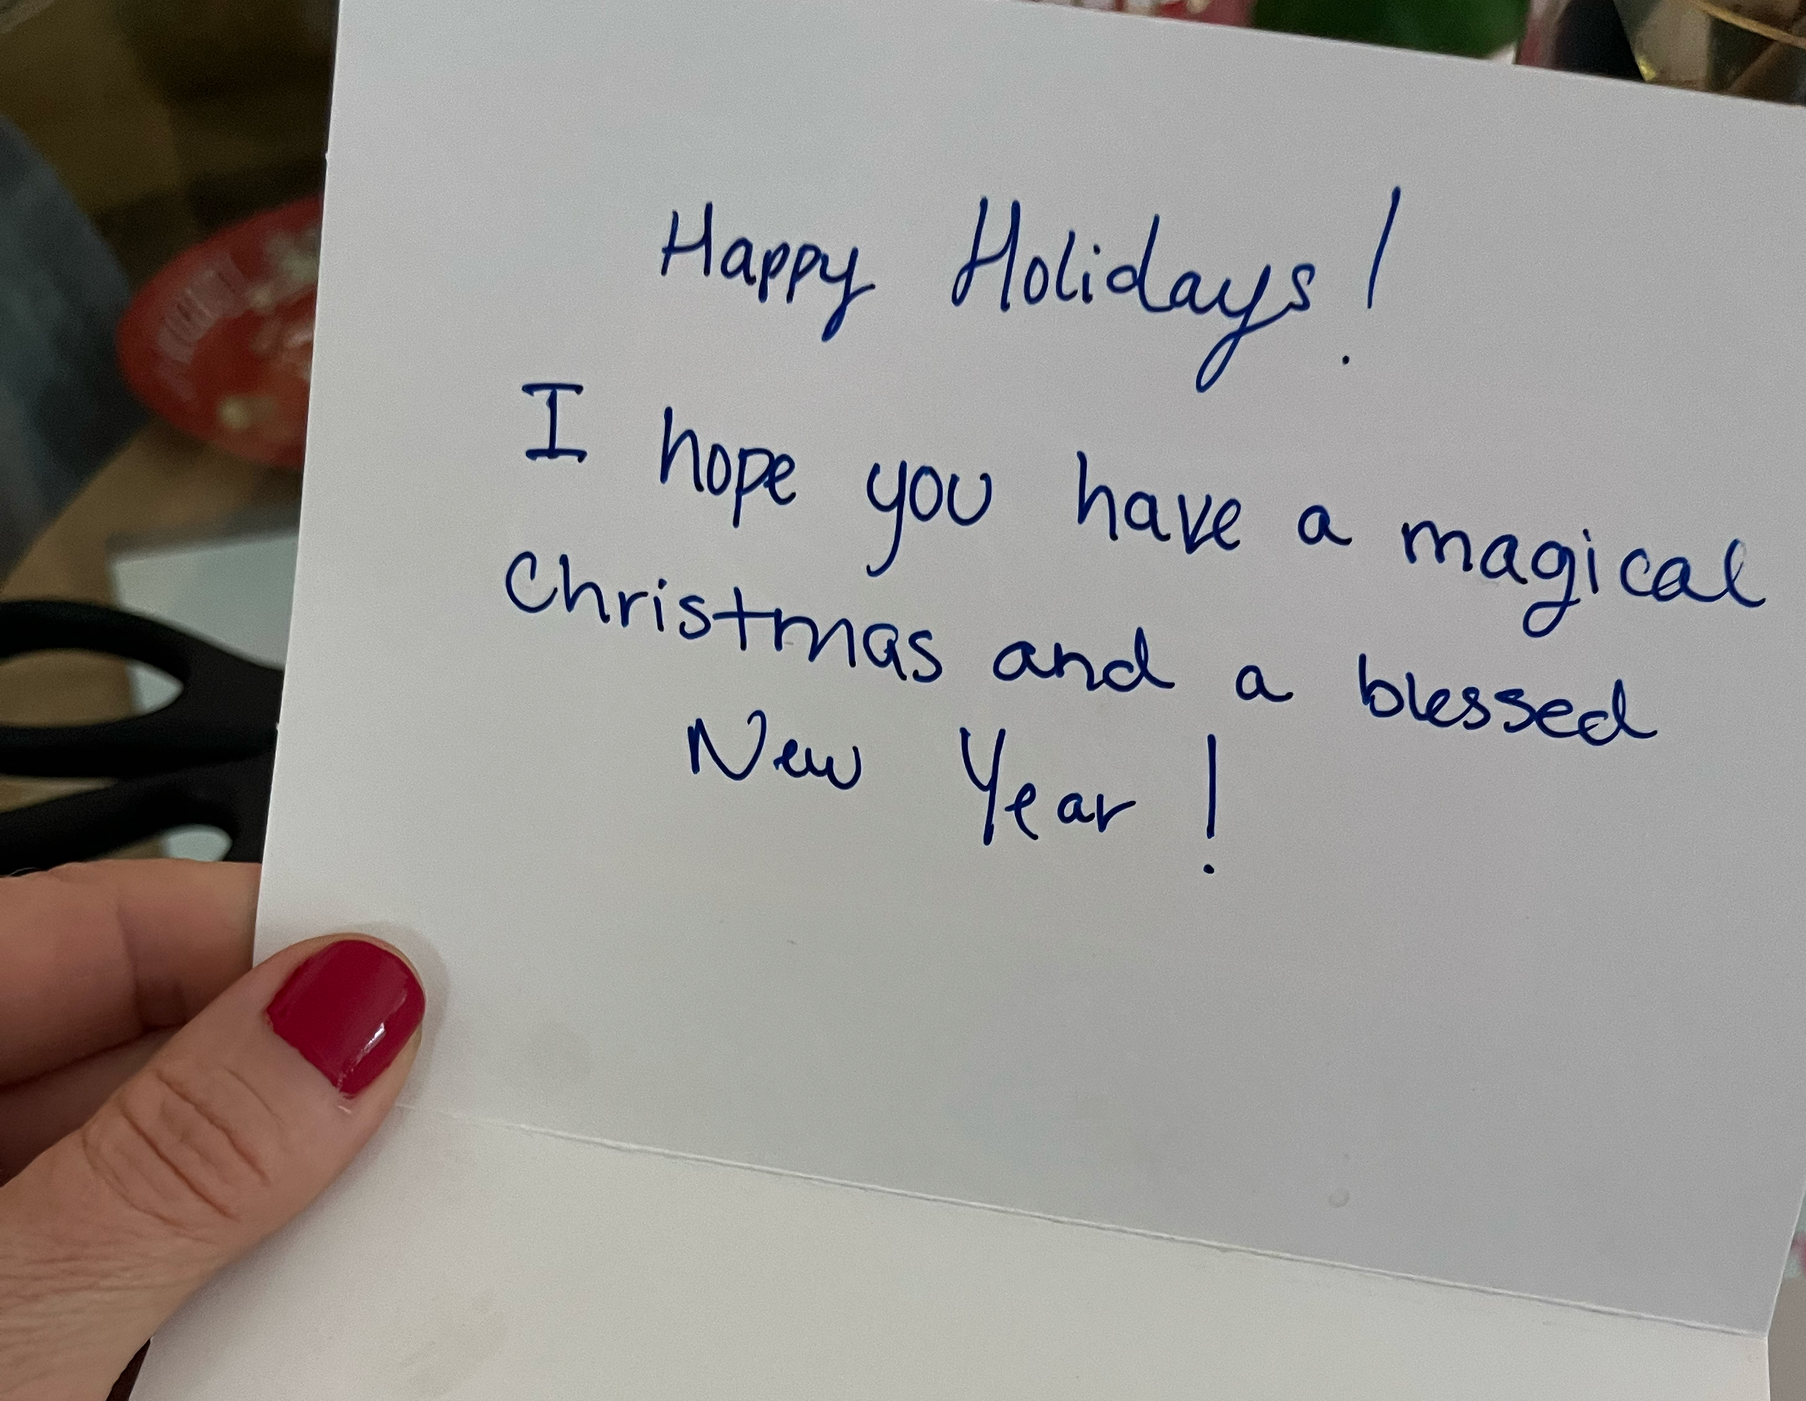 Happy Holidays!
I hope you have a magical
Christmas and a blessed
New Year!